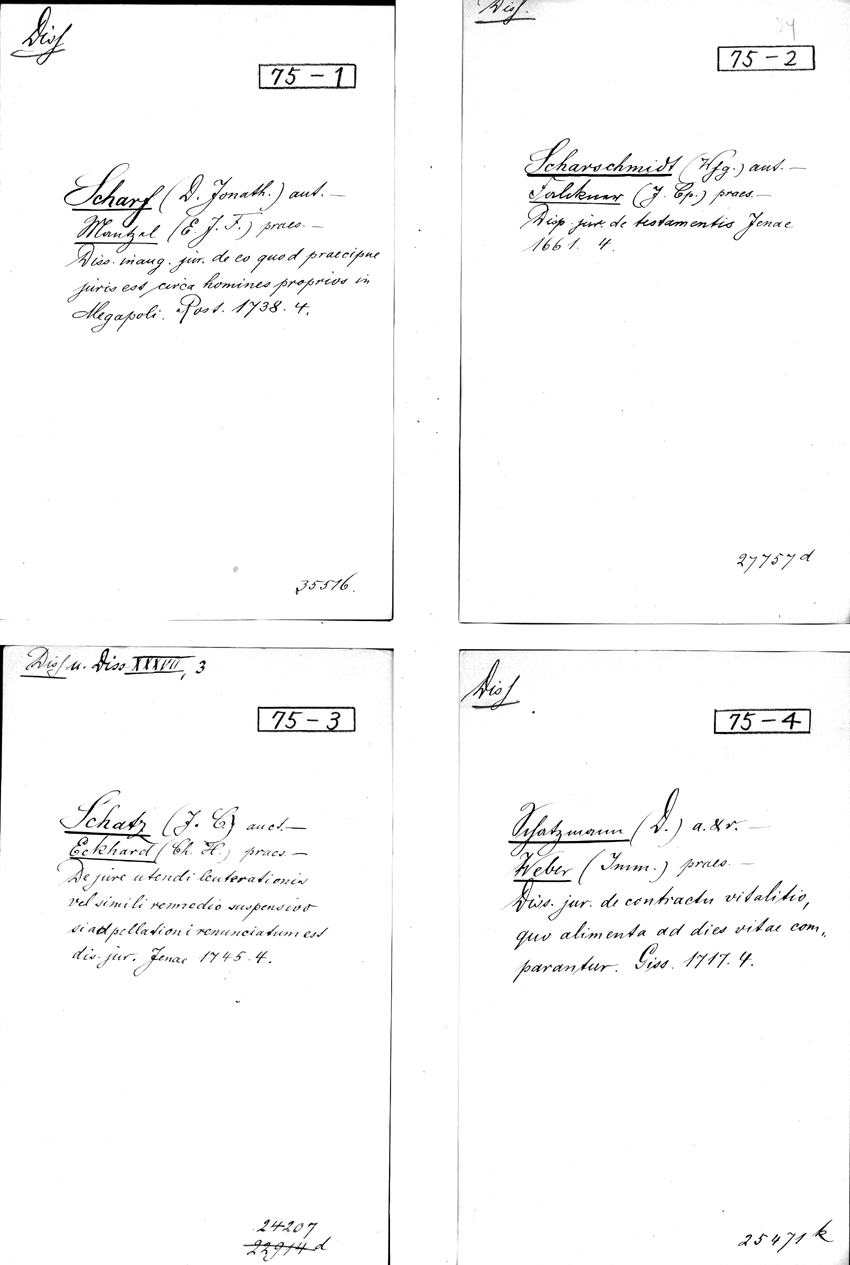 Diss
75-1
Scharf (D. Jonath.) aut. —
Mantzel (E. J. F.) praes. —
Diss. inaug. jur. de eo quod praecipue
juris est circa homines proprios in
Megapoli. Rost. 1738. 4.
35516.
Diss.
75-2
Scharschmidt (Wfg.) aut. —
Falckner (J. Cp.) praes. —
Disp. jur. de testamentis Jenae
1661. 4.
27757 d
Diss u. Diss XXXVII, 3
75-3
Schatz (J. C) auct. —
Eckhard (Ch. H.) praes. —
De jure utendi leuterationis
vel simili remedio suspensivo
si adpellationi renunciatum est
dis. jur. Jenae 1745. 4.
24207
22914 d
Diss
75-4
Schatzmann (D.) a. & r. —
Weber (Imm.) praes. —
Diss. jur. de contractu vitalitio,
quo alimenta ad dies vitae com-
parantur. Giss. 1717. 4.
25471 k